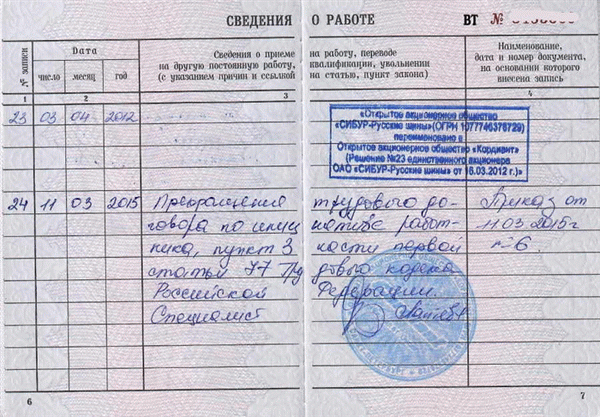 СВЕДЕНИЯ О РАБОТЕ ВТ №
№ записи
Дата
число месяц год
Сведения о приеме на работу, переводе
на другую постоянную работу, квалификации, увольнении
(с указанием причин и ссылкой на статью, пункт закона)
Наименование,
дата и номер документа,
на основании которого
внесена запись
1 2 3 4
23 03 04 2012
«Открытое акционерное общество
«СИБУР-Русские шины» (ОГРН 1077746376729)
переименовано в
Открытое акционерное общество «Кордиант»
(Решение №23 единственного акционера
ОАО «СИБУР-Русские шины» от 16.03.2012 г.)»
24 11 03 2015 Прекращение трудового до- Приказ от
говора по инициативе работ- 11.03.2015г
ника, пункт 3 части первой №6.
статьи 77 Трудового кодекса
Российской Федерации.
Специалист
6 7